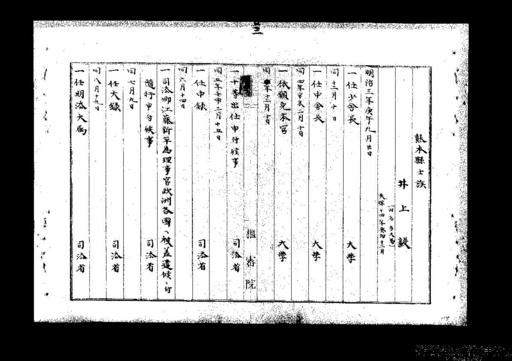 熊本縣士族
井上毅
明治三年庚午九月廿日
一任少舎長
大學
同十二月十日
一任中舎長
大學
同四年辛未二月十日
一依願免本官
大學
同年十二月十日
一十等出仕申付候事
司法省
樞密院
同五年壬申二月十五日
一任中録
司法省
同六月廿四日
一司法卿江藤新平為理事官欧洲各國ヘ被差遣候ニ付
随行申付候事
司法省
同七月九日
一任大録
司法省
同八月十五日
一任明法大属
司法省